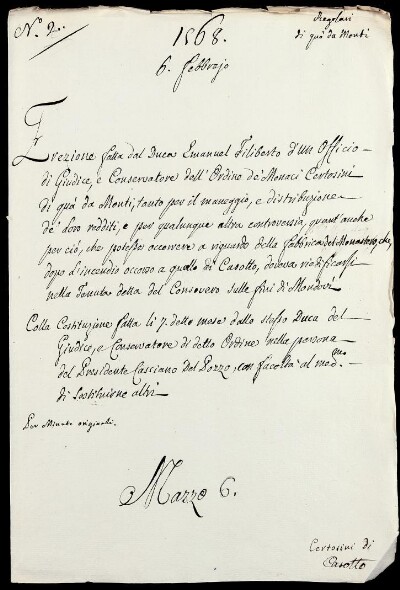 N.° 2.
1568.
Regolari
di quà da Monti
6. Febbrajo
Erezione fatta dal Duca Emanuel Filiberto d'un Officio
di Giudice, e Conservatore dell'Ordine de' Monaci Certosini
di quà da Monti, tanto per il maneggio, e distribuzione
de' loro redditi, e per qualunque altra controversia, quant'anche
per ciò, che potesse occorrere a riguardo della fabbrica del Monastero, che
dopo l'incendio occorso a quello di Casotto, doveva riedificarsi
nella Tenuta detta del Consovero sulle fini di Mondovì
Colla Costituzione fatta li 7. detto mese dallo stesso Duca del
Giudice, e Conservatore di detto Ordine nella persona
del Presidente Cassiano Del Pozzo, con facoltà al med.mo
di sostituirne altri
Per Minute originali.
Marzo 6.
Certosini di
Casotto